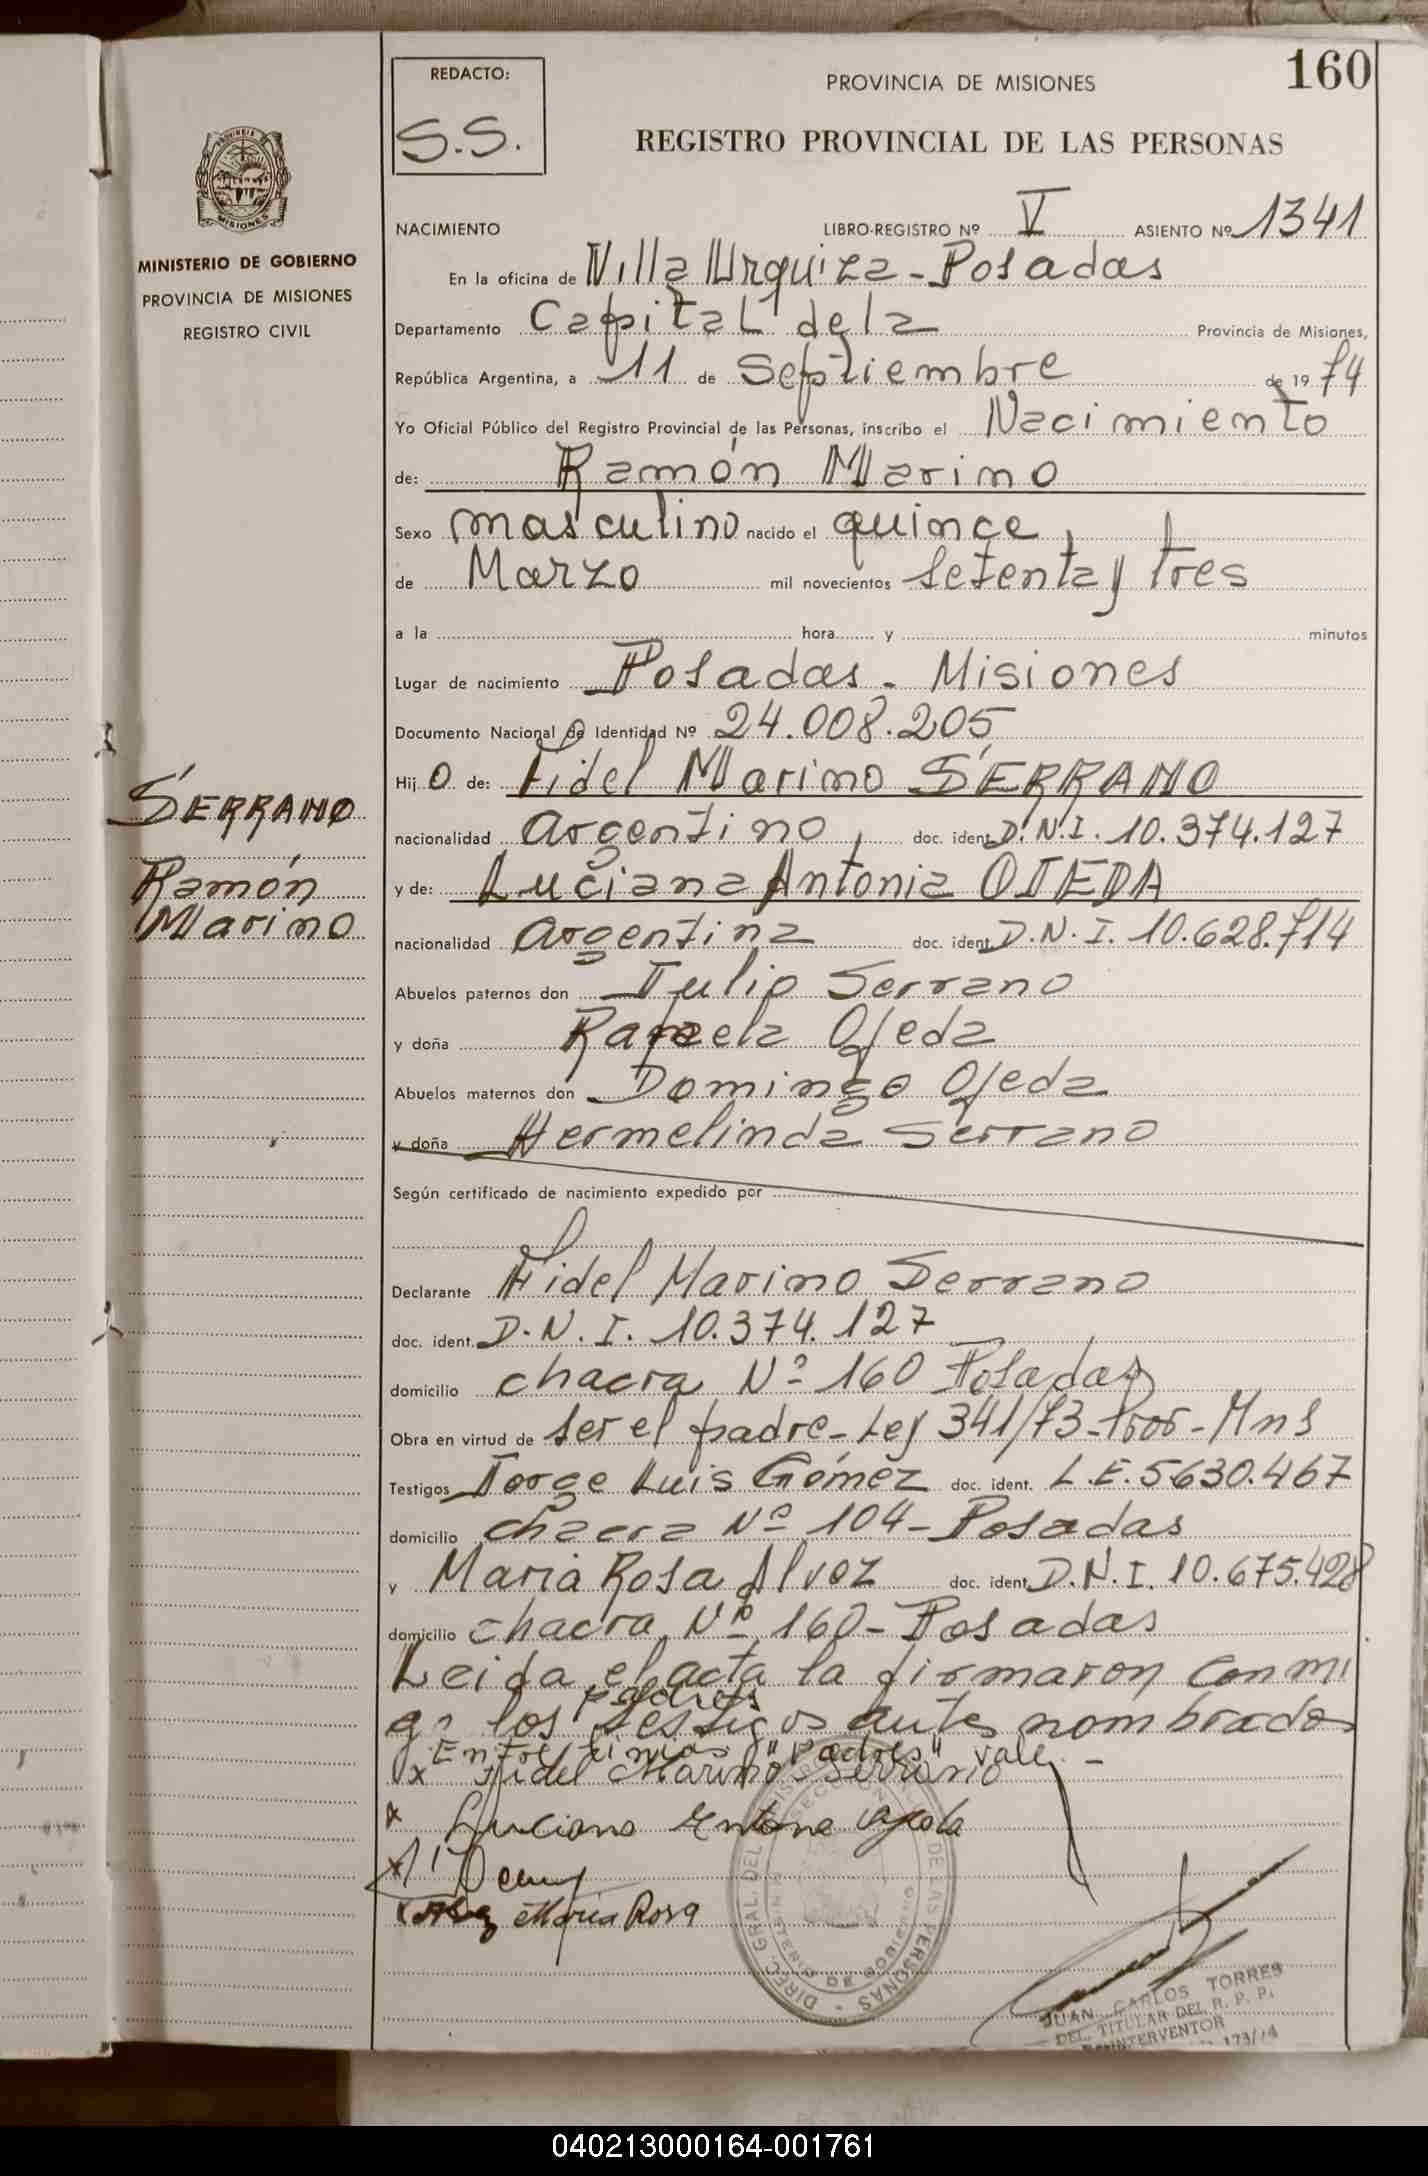 160
REDACTO:
S.S.
PROVINCIA DE MISIONES
REGISTRO PROVINCIAL DE LAS PERSONAS
MISIONES
MINISTERIO DE GOBIERNO
PROVINCIA DE MISIONES
REGISTRO CIVIL
NACIMIENTO LIBRO-REGISTRO Nº V ASIENTO Nº 1341
En la oficina de Villa Urquiza - Posadas
Departamento Capital de la Provincia de Misiones,
República Argentina, a 11 de Septiembre de 1974
Yo Oficial Público del Registro Provincial de las Personas, inscribo el Nacimiento
de: Ramón Marino
Sexo masculino nacido el quince
de Marzo mil novecientos setenta y tres
a la hora y minutos
Lugar de nacimiento Posadas - Misiones
Documento Nacional de Identidad Nº 24.008.205
Hijo de: Fidel Marino SERRANO
nacionalidad Argentino doc. ident. D.N.I. 10.374.127
y de: Luciana Antonia OJEDA
nacionalidad Argentina doc. ident. D.N.I. 10.628.714
Abuelos paternos don Julio Serrano
y doña Rafaela Ojeda
Abuelos maternos don Domingo Ojeda
y doña Hermelinda Serrano
Según certificado de nacimiento expedido por
Declarante Fidel Marino Serrano
doc. ident. D.N.I. 10.374.127
domicilio chacra Nº 160 Posadas
Obra en virtud de ser el padre - Ley 341/73 - Prov - Mns
Testigos Jorge Luis Gómez doc. ident. L.E. 5.630.467
domicilio chacra Nº 104 - Posadas
y Maria Rosa Alvez doc. ident. D.N.I. 10.675.428
domicilio chacra Nº 160 - Posadas
Leida el acta la firmaron conmi
padres
go los testigos antes nombrados
Entre lineas "padres" vale. -
x Fidel Marino Serrano
x Luciana Antona
x
x Maria Rosa
SERRANO
Ramón
Marino
DIREC. GRAL. DEL REGISTRO DE LAS PERSONAS
MINISTERIO DE GOBIERNO
JUAN CARLOS TORRES
DEL. TITULAR DEL R. P. P.
INTERVENTOR
173/74
040213000164-001761